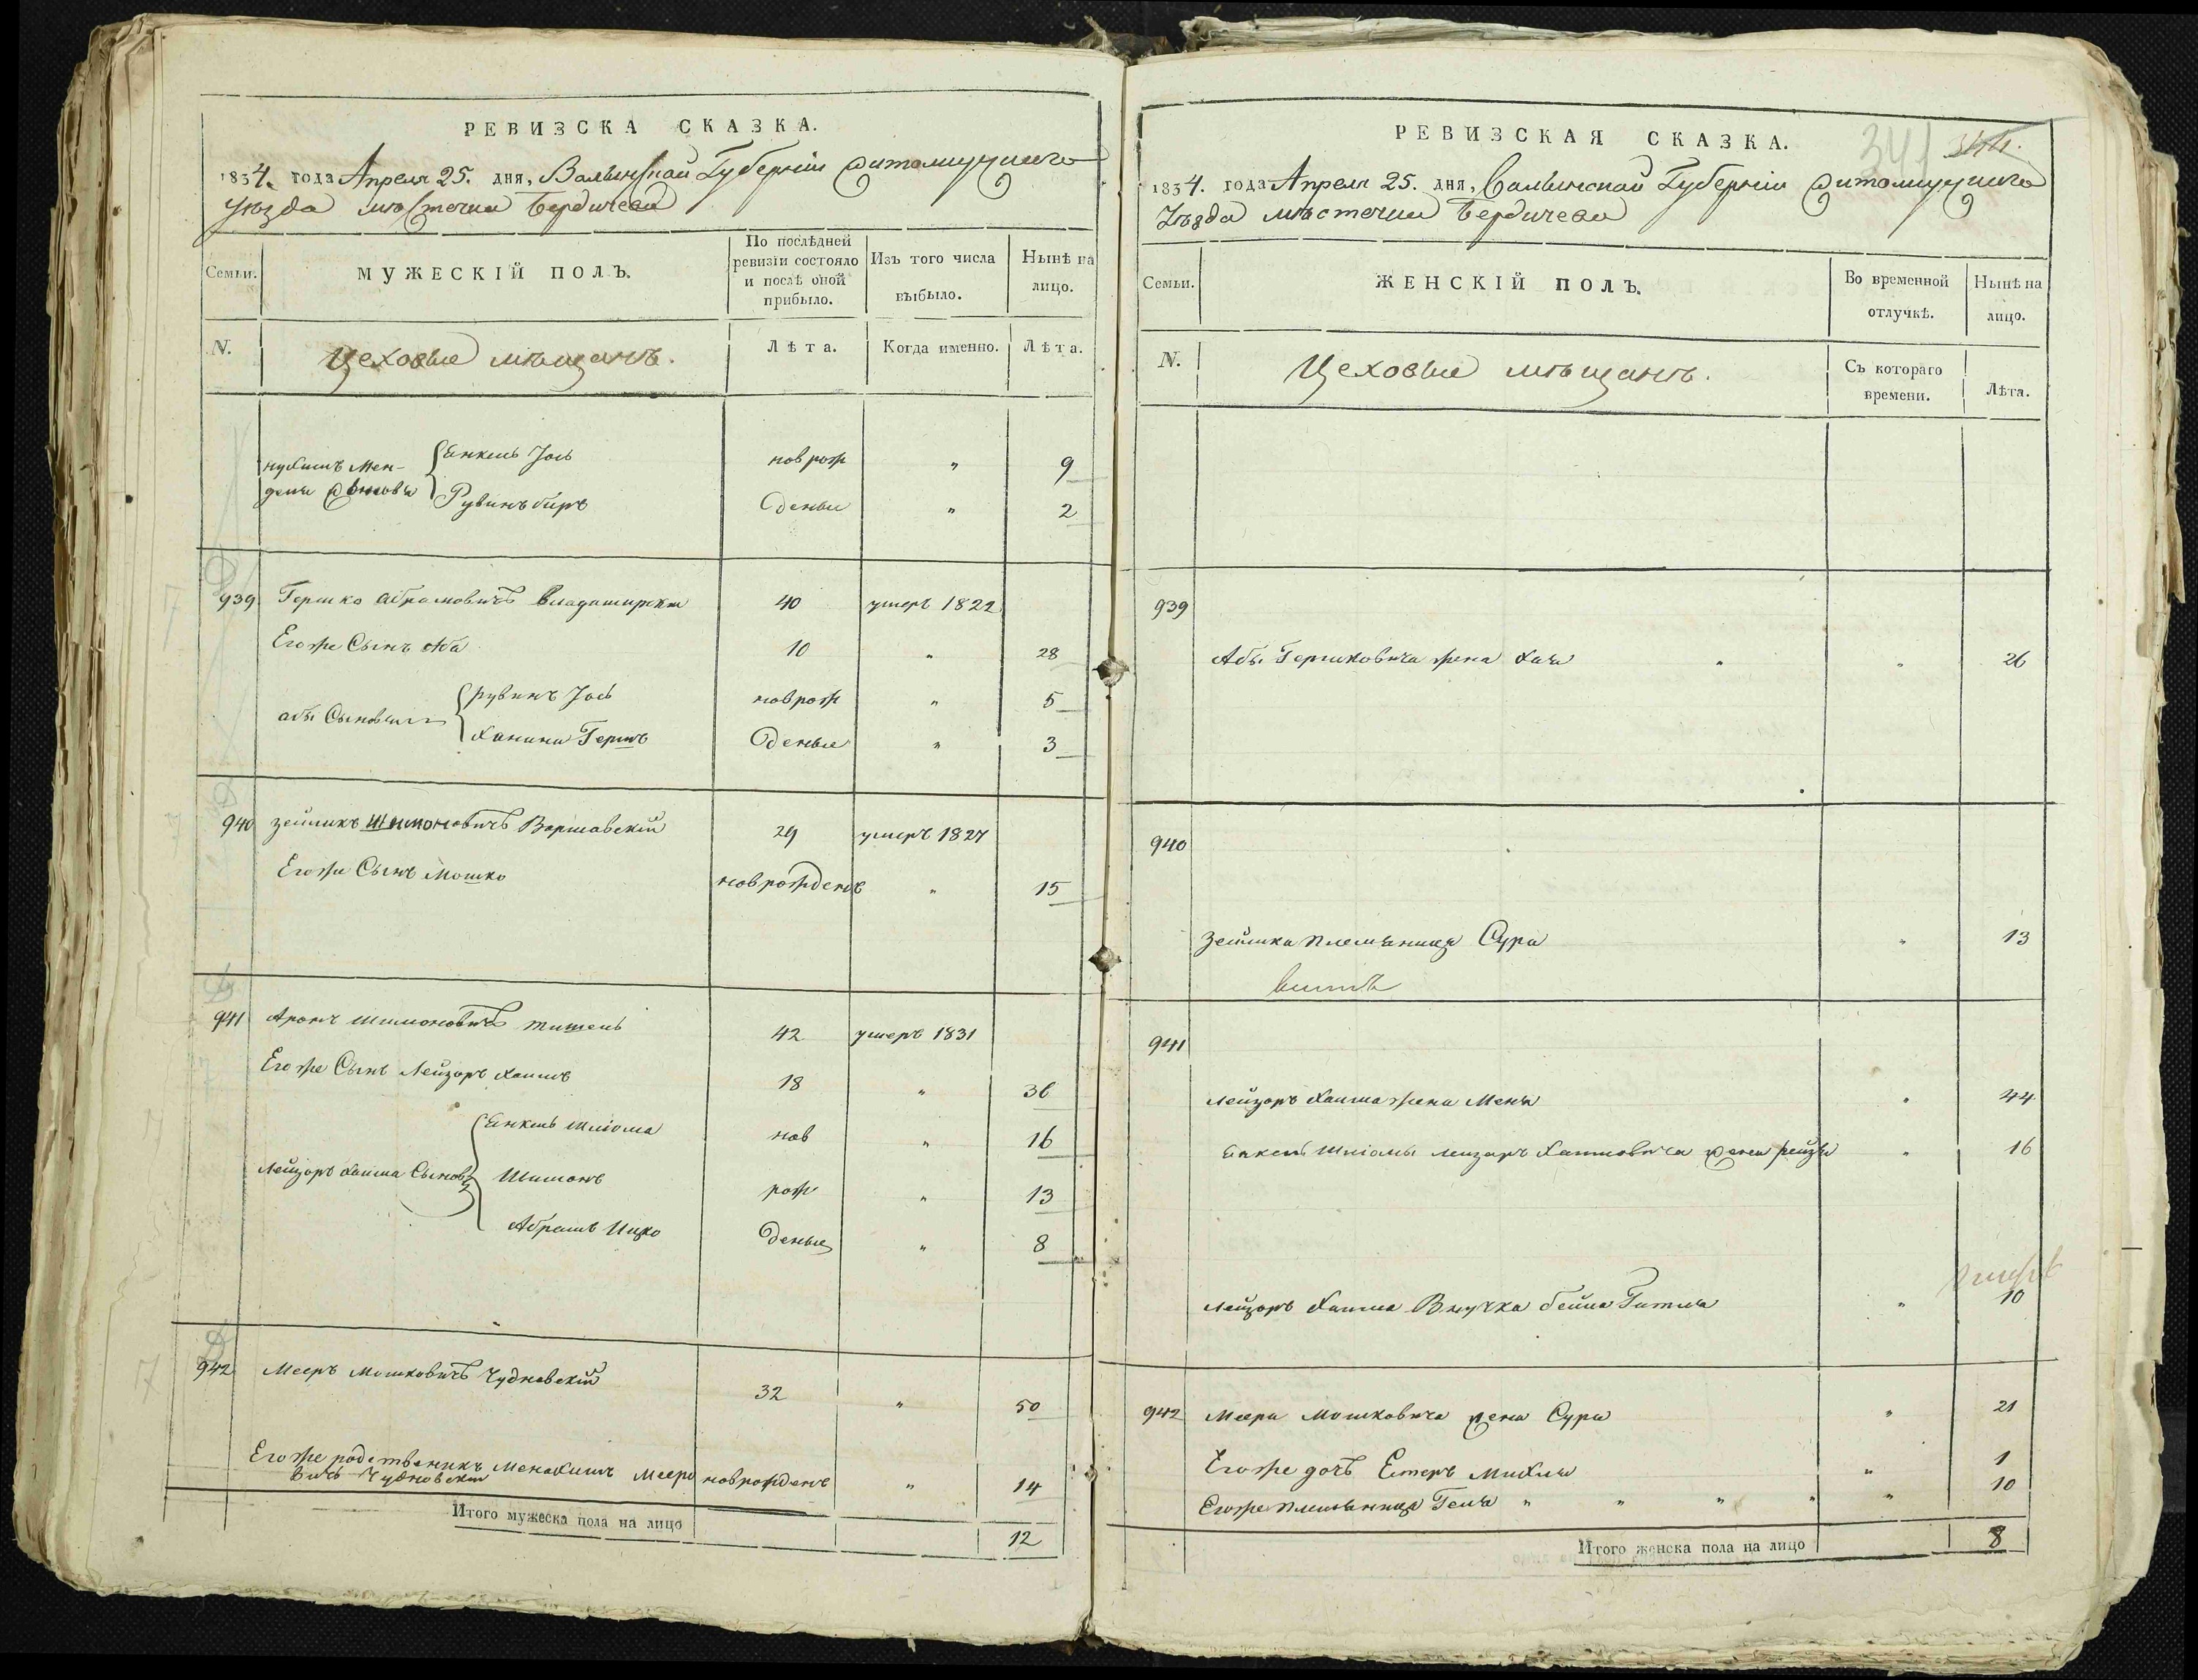 РЕВИЗСКА СКАЗКА.
1834. года Апреля 25. дня, Волынской Губерніи Житомирскаго
Уѣзда мѣстечка Бердичева
Семьи.
МУЖЕСКІЙ ПОЛЪ.
По послѣдней ревизіи состояло и послѣ оной прибыло.
Изъ того числа выбыло.
Нынѣ на лицо.
N.
Цеховые мѣщанѣ.
Лѣта.
Когда именно.
Лѣта.
Нухимъ Мен-
деля Сыновья
Янкель Іось новрож „ 9
Рувинъ Биръ Денные „ 2
939 Гершко Абрамовичъ 40 умеръ 1822
Егоже Сынъ Аба 10 „ 28
Абы Сыновья
Рувинъ Іось новрож „ 5
Ханина Гершъ Денные „ 3
940 Зейликъ Шимоновичъ Варшавскій 29 умеръ 1827
Егоже Сынъ Мошко новрожденъ „ 15
941 Аронъ Шимоновичъ Тишель 42 умеръ 1831
Егоже Сынъ Лейзоръ Хаимъ 18 „ 36
Лейзоръ Хаима Сыновья
Янкель Шліома нов „ 16
Шимонъ рож „ 13
Абрамъ Ицко Денные „ 8
942 Мееръ Мошковичъ Чудновскій 32 „ 50
Егоже родственникъ Менахимъ Мееро
вичъ Чудновскій новрожденъ „ 14
Итого мужеска пола на лицо 12
РЕВИЗСКАЯ СКАЗКА.
341
1834. года Апреля 25. дня, Волынской Губерніи Житомирскаго
Уѣзда мѣстечка Бердичева
Семьи.
ЖЕНСКІЙ ПОЛЪ.
Во временной отлучкѣ.
Нынѣ на лицо.
N.
Цеховые мѣщанѣ.
Съ котораго времени.
Лѣта.
939
Абы Гершковича жена Хая „ „ 26
940
Зейлика племяница Сура „ 13
941
Лейзоръ Хаима жена Меня „ 44
Янкель Шліомы Лейзоръ Хаимовича жена Рейзя „ 16
умерѣ
Лейзоръ Хаима Внучка Бейла Гитля „ 10
942 Меера Мошковича жена Сура „ 21
Егоже дочь Естеръ Михля „ 1
Егоже племяница Геня „ „ „ „ „ 10
Итого женска пола на лицо 8